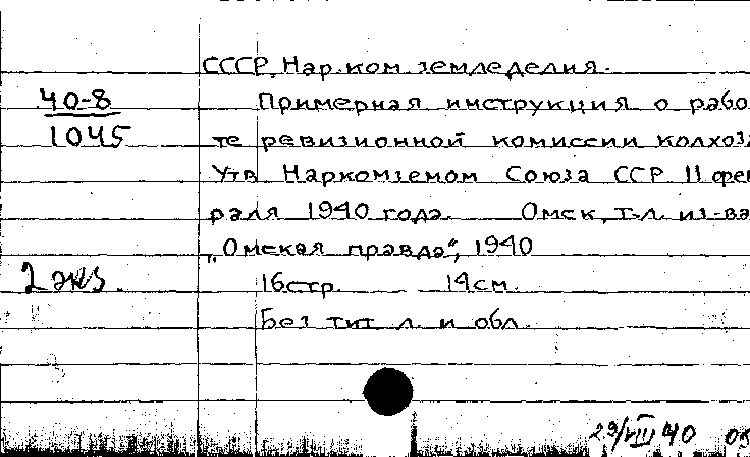 СССР. Нар.ком земледелия.
40-8
1045
Примерная инструкция о рабо
те ревизионной комиссии колхоза
Утв Наркомземом Союза ССР 11 фев
раля 1940 года. Омск, т.-л. из-ва
„Омская правда“, 1940
2 экз.
16стр. 14см.
Без тит л. и обл.
29/VIII 40